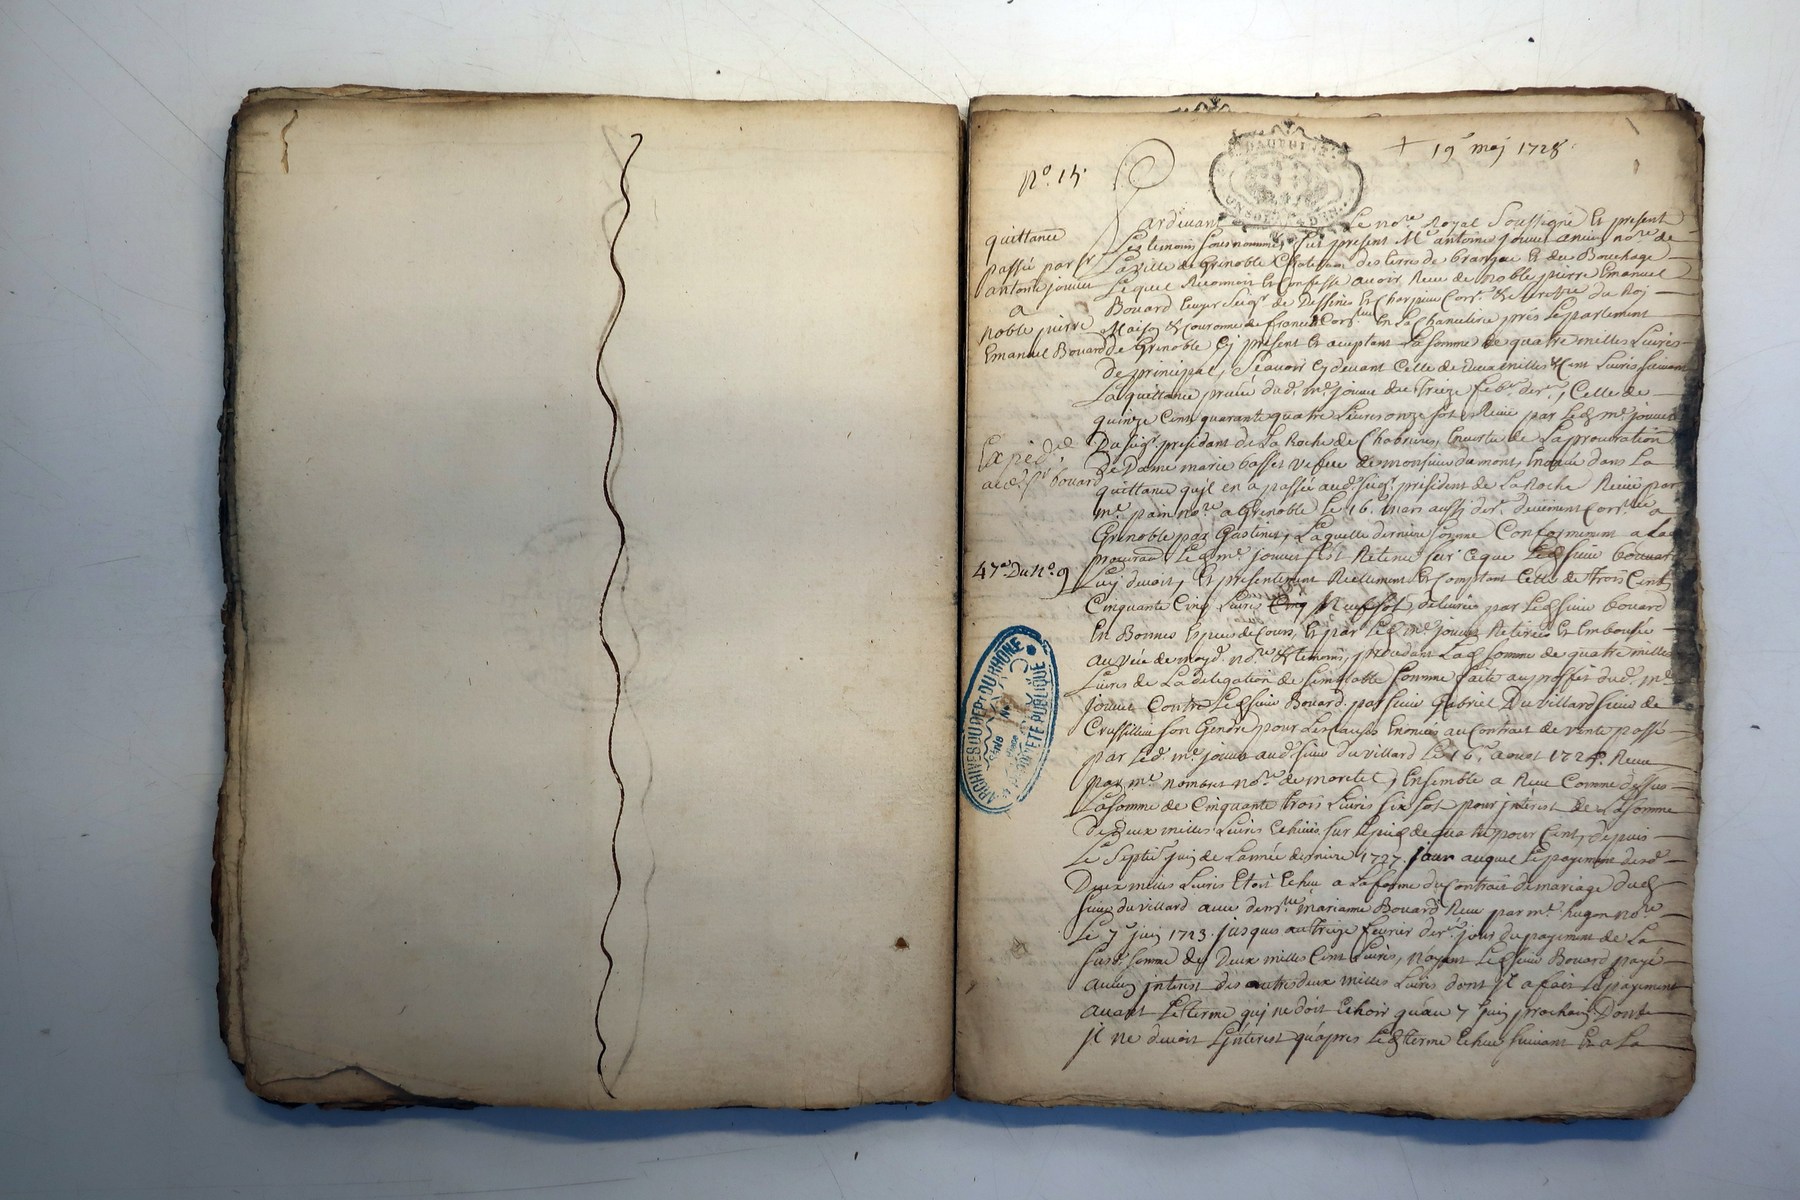 + 19 maj 1728
No. 15.
DAUPHINÉ
quittance
passée par sr
antoine jouve
a
noble pierre
Emanuel Bouard
Expedié
aud. sr. bouard
47e. Du No. 9
Pardevant Le nore. Royal Soussigné Et present
Les temoins sousnommés fut present Me antoine jouve ancien nore. de
La Ville de Grenoble Chatelain des terres de brangue Et du Bouchage
Lequel Reconnoit Et Confesse avoir Receu de Noble pierre Emanuel
Bouard Ecuyer Seigr. de Dessines Et Charpieu Conr. & secretre du Roj
Maison & couronne de france En La Chancelerie prés Le parlement
de Grenoble Cy present Et aceptant La somme de quatre milles Livres
de principal, Sçavoir Cydevant Celle de deux milles & Cent Livres suivant
La quittance privée dud. me. jouve du treize febr. der., Celle de
quinze Cents quarante quatre Livres onze sols Receue par Led me jouve
Du seigr. president de La Roche de Chabrieres, Envertu de La procuration
de Dame marie basset vefve de monsieur dumont, Enoncée dans La
quittance qu'jl en a passée aud. seigr. president de La Roche Receue par
me. pain nore. a Grenoble le 16. mars aussi der. deüement Conrollée a
Grenoble par Gastinet, Laquelle derniere somme Conformement a La
procuraon. Led me. jouve s'est Retenue sur ce que Led sieur bouard
Luj devoit, Et presentement Reelement Et Comptant Celle de trois Cents
Cinquante Cinq Livres Neuf sols delivrée par Led sieur bouard
En Bonnes Especes de Cours, Et par Led me. jouve Retirées Et Emboursée
au veu de moyd. nore. & temoins, procedant Lad somme de quatre milles
Livres de La delegation de semblable somme faite au proffit dud. me.
jouve Contre Led sieur Bouard par sieur Gabriel Duvillard sieur de
Crussillieu son Gendre pour Les Causes Enoncées au Contrait de vente passé
par Led. me. jouve aud. sieur du villard Le 16e. aoust 1724. Receu
par me. nore. de morestel, Ensemble a Receu Comme dessus
La somme de Cinquante trois Livres six sols pour jnterest de La somme
de Deux milles Livres Echeues sur Le pied de quatre pour Cent, depuis
Le Septie. juin de L'année derniere 1727. jour auquel Le payement desd.
Deux milles Livres Etoit Echeu a La forme du Contrait de mariage dud
sieur du villard avec demlle marianne Bouard Receu par me. hugon nore
Le 7e juin 1723. jusques au treize fevrier der. jour du payement de La
susd. somme de Deux milles Cent Livres, n'ayant Led sieur Bouard payé
aucun jnterest des autres deux milles Livres dont jl a fait Le payement
avant Le terme quj ne doit Echoir qu'au 7e juin prochain, Dont
jl ne devoit L'jnterest qu'apres Led terme Echeu suivant Et a La
ARCHIVES DU DEPT DU RHONE
PROPRIETE PUBLIQUE